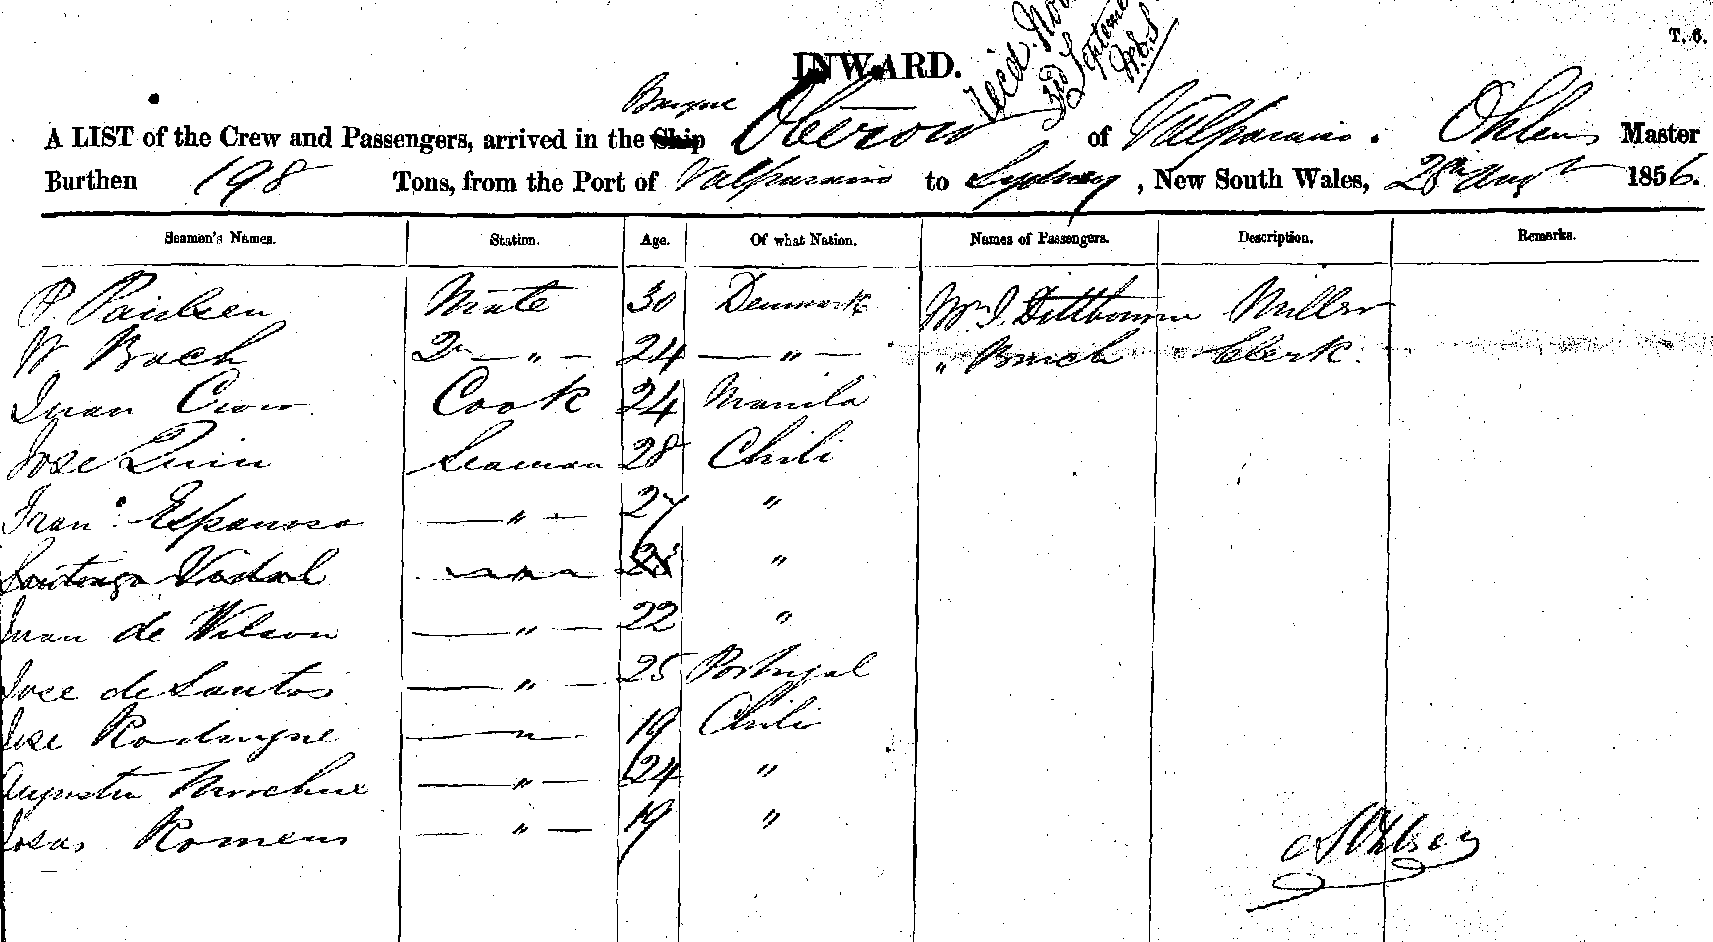 T. 6.
INWARD.
Rec'd. 3rd Septem
Barque
A LIST of the Crew and Passengers, arrived in the Ship Oberon of Valparaiso. Ohlsen Master
Burthen 198 Tons, from the Port of Valparaiso to Sydney, New South Wales, 28th Augt 1856.
Seamen's Names. Station. Age. Of what Nation. Names of Passengers. Description. Remarks.
P. Paulsen Mate 30 Denmark Mr J. Dittbourn Miller
W Bach 2d — " — 24 — " — " Clerk.
Juan Cook 24 Manila
Jose Seaman 28 Chili
Frano. Espanosa — " — 27 "
Santiago Vidal — " — "
Juan de Wilson — " — 22 "
Jose de Santos — " — 25 Portugal
Jose — " — 19 Chili
— " — 24 "
— " — 19 "
Ohlsen